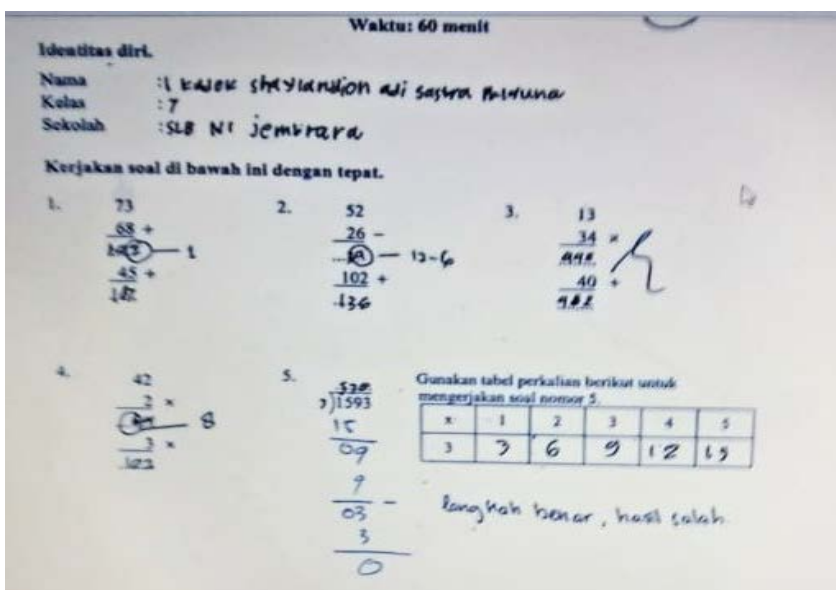 Waktu: 60 menit
Identitas diri.
Nama : I kadek
Kelas : 7
Sekolah : SLB N1 jembrara
Kerjakan soal di bawah ini dengan tepat.
1. 73
68 +
1
45 +
2. 52
26 -
12-6
102 +
136
3. 13
34 ×
40 +
4. 42
2 ×
8
3 ×
5.
3)1593
15
09
9
03 -
3
0
Gunakan tabel perkalian berikut untuk
mengerjakan soal nomor 5.
x 1 2 3 4 5
3 3 6 9 12 15
langkah benar, hasil salah